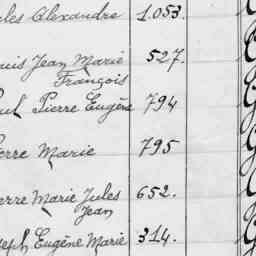 les Alexandre 1.053.
uis Jean Marie 527.
François
ul Pierre Eugène 794
erre Marie 795
erre Marie Jules 652.
Jean
seph Eugène Marie 314.